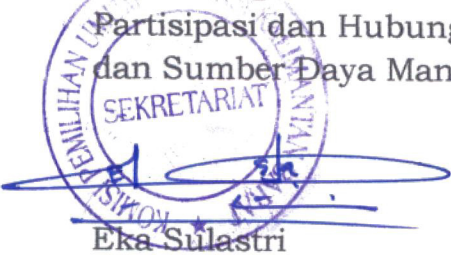 Partisipasi dan Hubung
dan Sumber Daya Man
KOMISI PEMILIHAN
SEKRETARIAT
Eka Sulastri